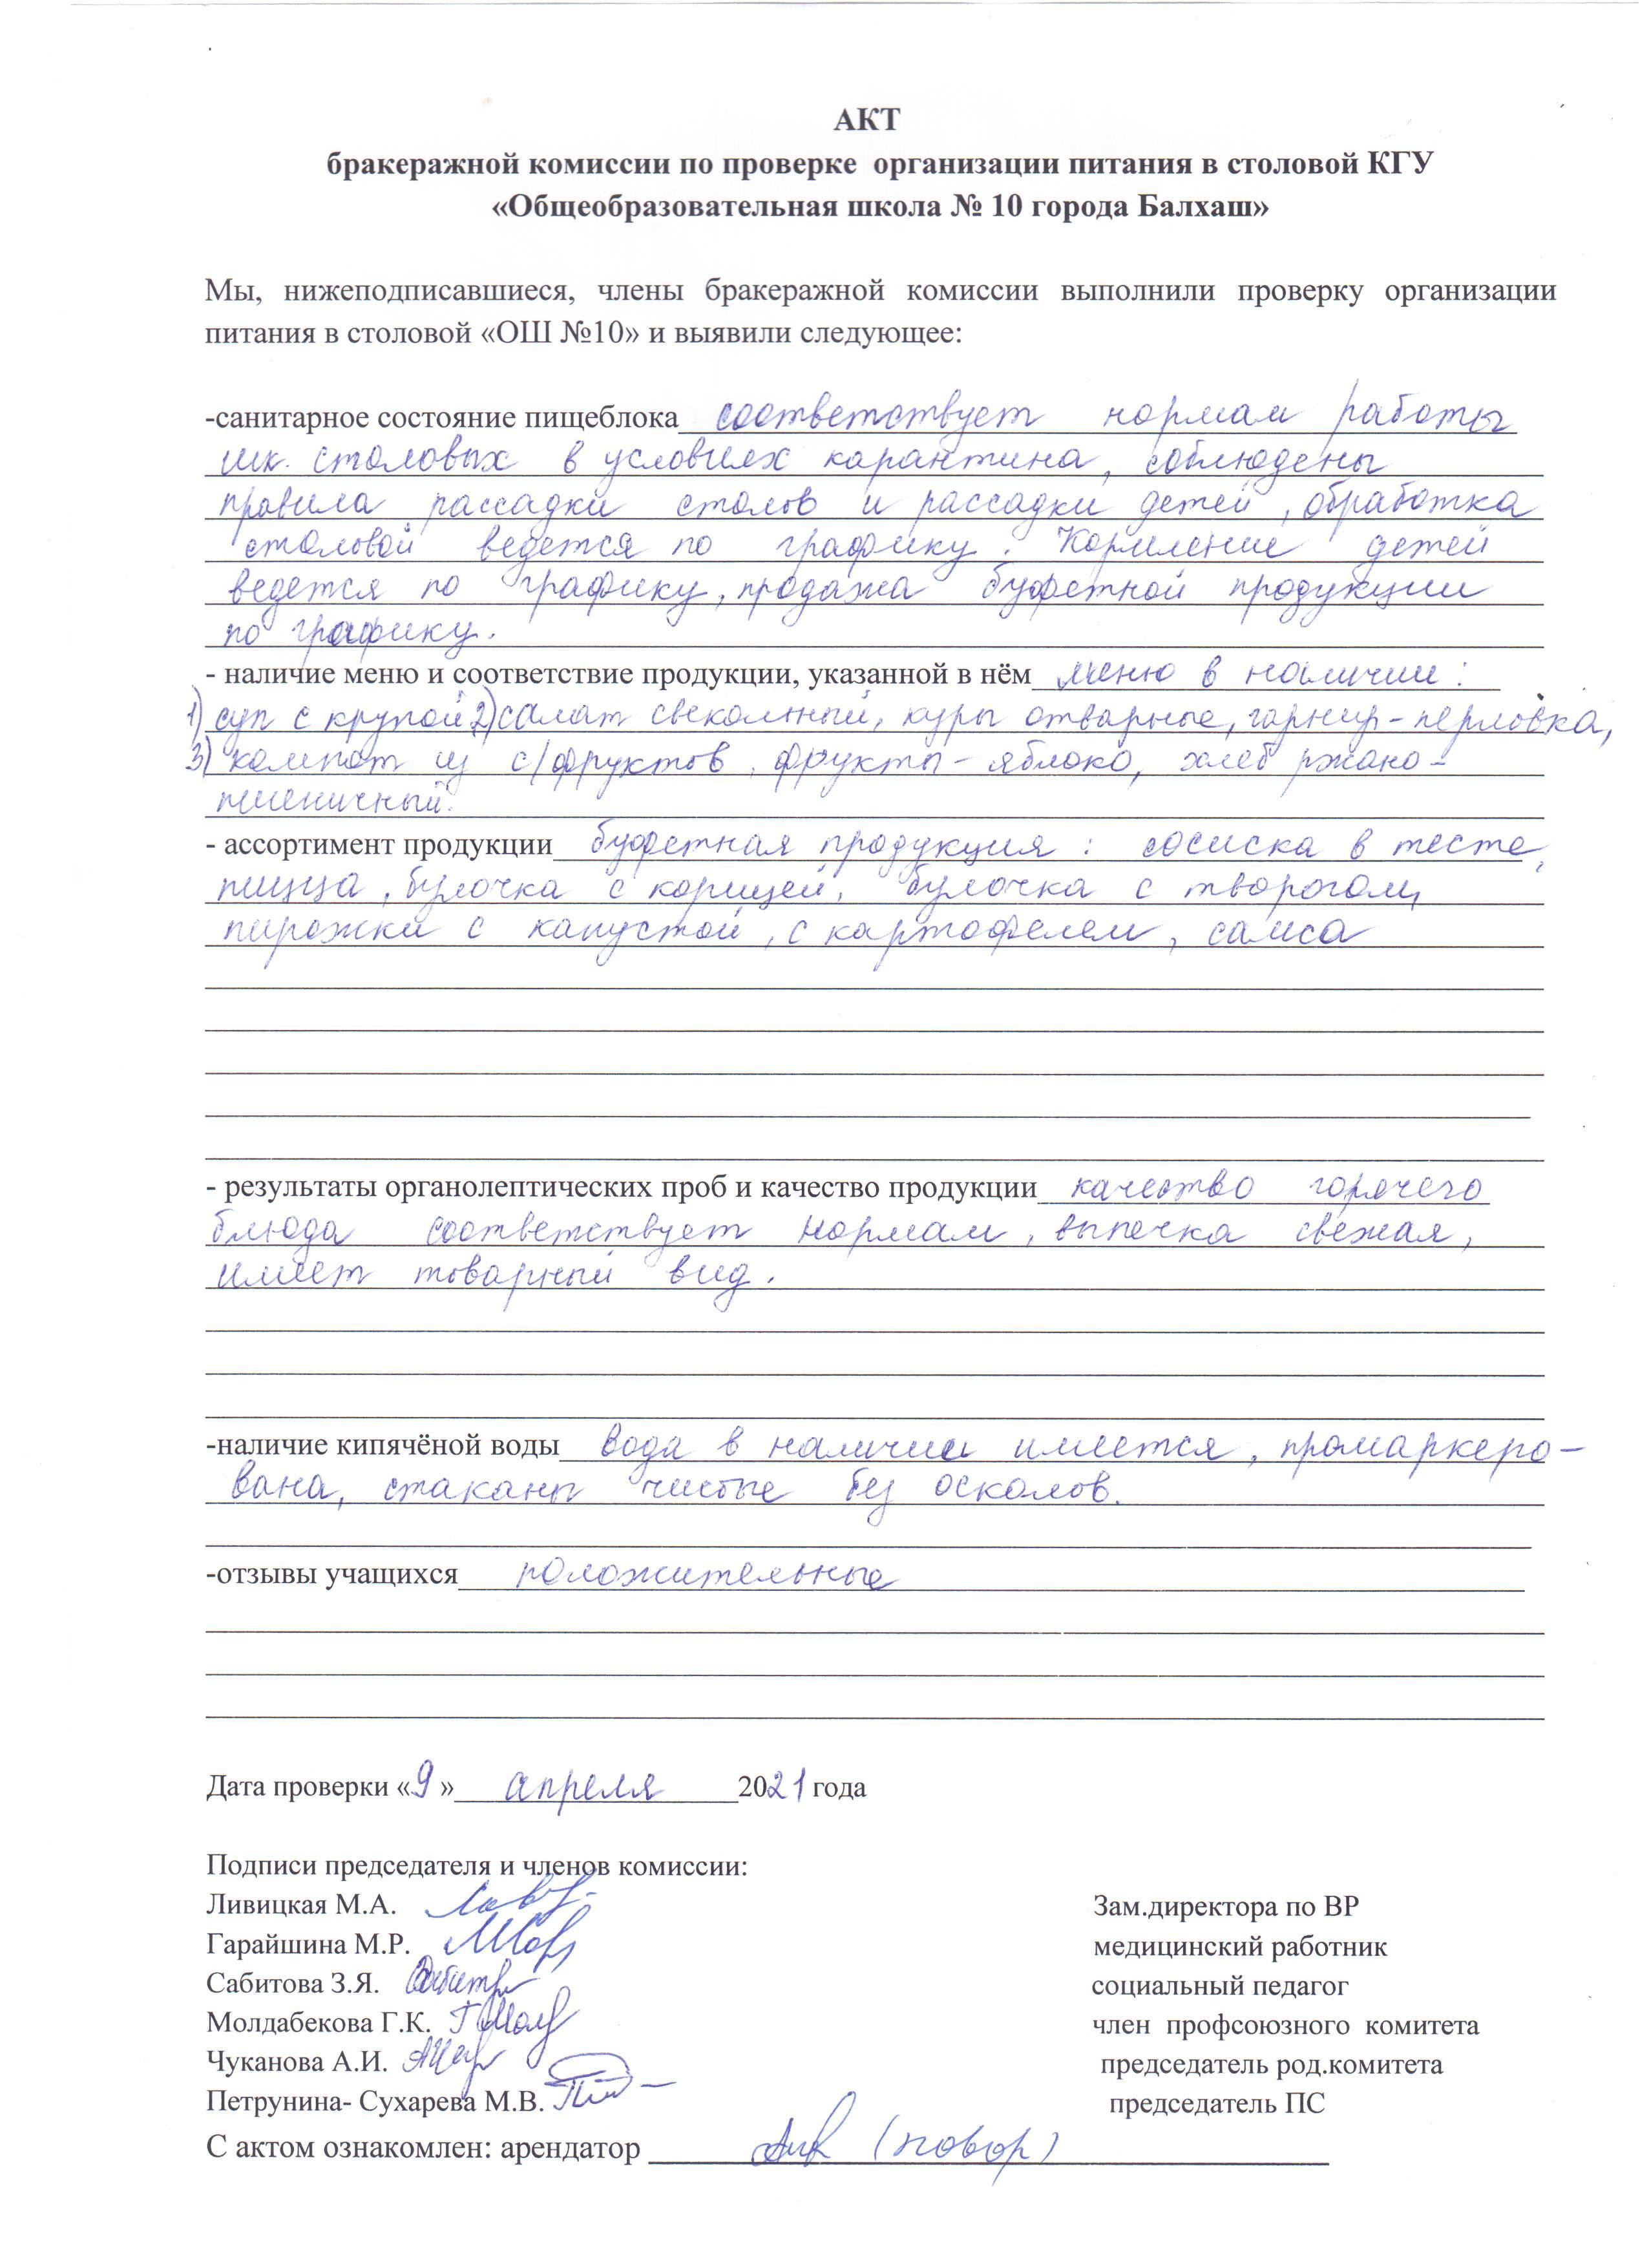 АКТ
бракеражной комиссии по проверке организации питания в столовой КГУ
«Общеобразовательная школа № 10 города Балхаш»
Мы, нижеподписавшиеся, члены бракеражной комиссии выполнили проверку организации
питания в столовой «ОШ №10» и выявили следующее:
-санитарное состояние пищеблока соответствует нормам работы
шк. столовых в условиях карантина, соблюдены
правила рассадки столов и рассадки детей, обработка
столовой ведется по графику. Кормление детей
ведется по графику, продажа буфетной продукции
по графику.
- наличие меню и соответствие продукции, указанной в нём меню в наличии:
1) суп с крупой 2) салат свекольный, куры отварные, гарнир-перловка,
3) компот из с/фруктов, фрукты - яблоко, хлеб ржано-
пшеничный.
- ассортимент продукции буфетная продукция: сосиска в тесте,
пицца, булочка с корицей, булочка с творогом,
пирожки с капустой, с картофелем, самса
- результаты органолептических проб и качество продукции качество горячего
блюда соответствует нормам, выпечка свежая,
имеет товарный вид.
-наличие кипячёной воды вода в наличии имеется, промаркеро-
вана, стаканы чистые без осколов.
-отзывы учащихся положительные
Дата проверки «9» апреля 2021 года
Подписи председателя и членов комиссии:
Ливицкая М.А. Зам.директора по ВР
Гарайшина М.Р. медицинский работник
Сабитова З.Я. социальный педагог
Молдабекова Г.К. член профсоюзного комитета
Чуканова А.И. председатель род.комитета
Петрунина- Сухарева М.В. председатель ПС
С актом ознакомлен: арендатор (повар)